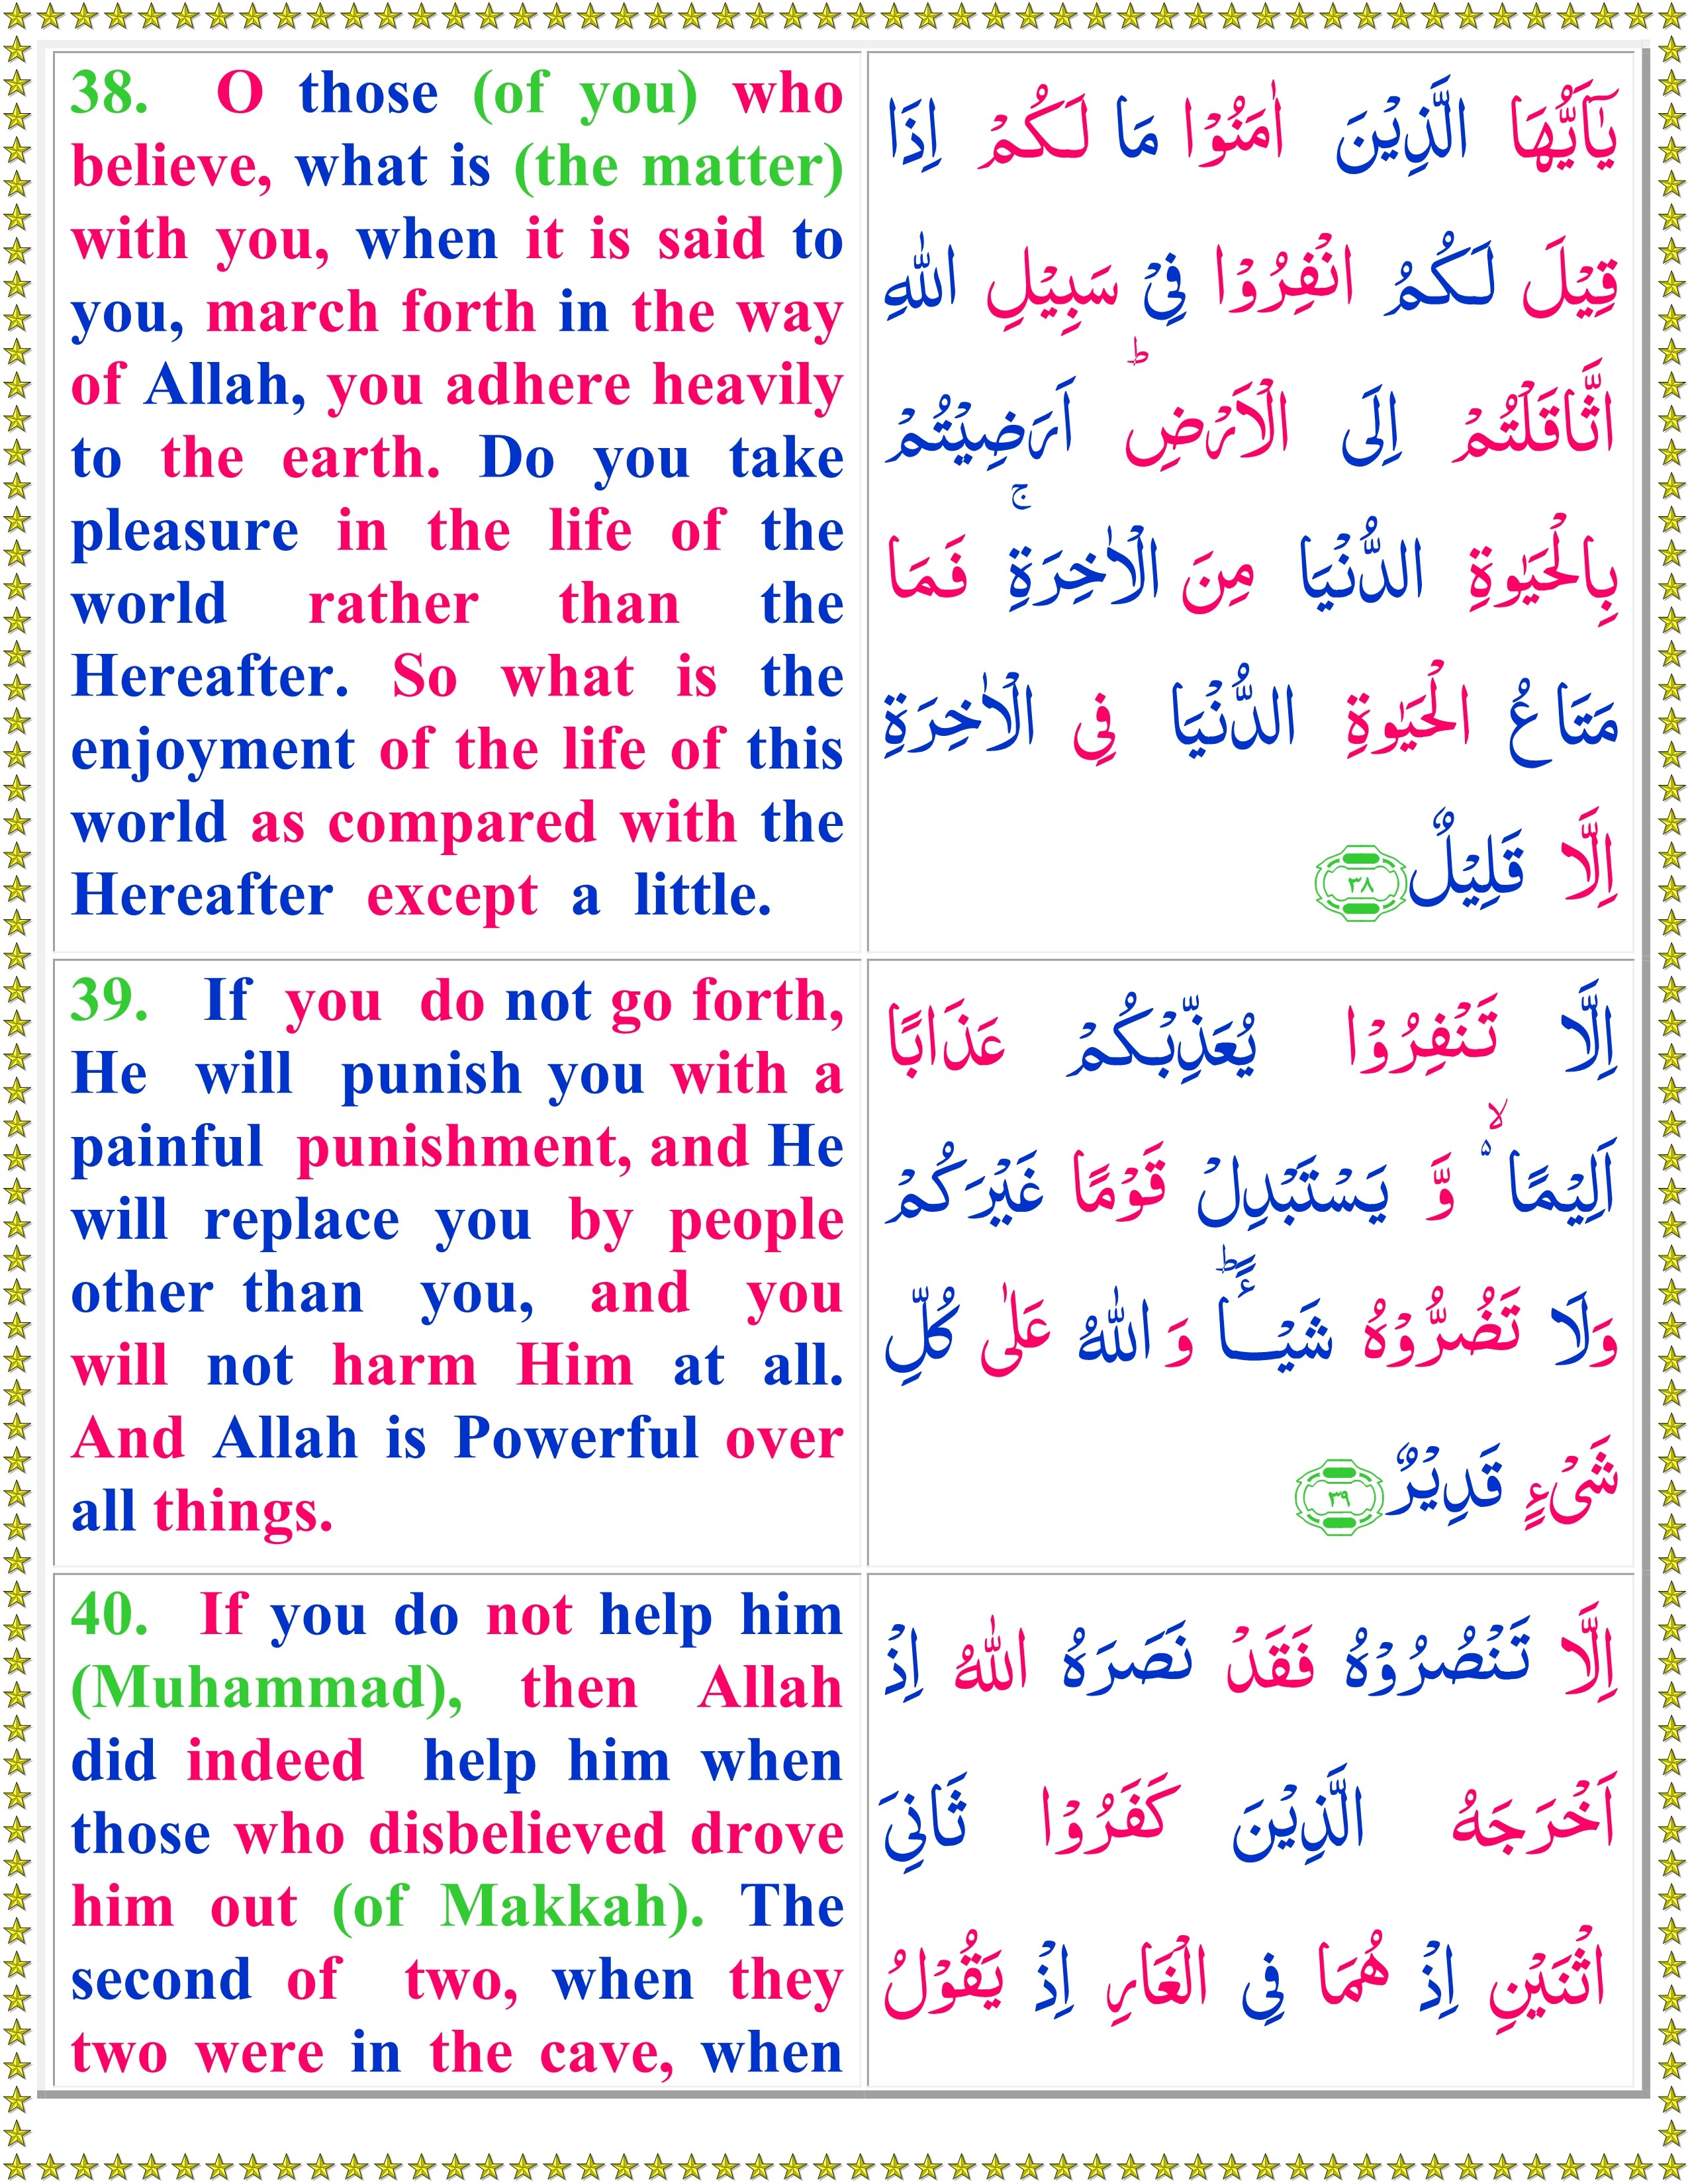 38. O those (of you) who
believe, what is (the matter)
with you, when it is said to
you, march forth in the way
of Allah, you adhere heavily
to the earth. Do you take
pleasure in the life of the
world rather than the
Hereafter. So what is the
enjoyment of the life of this
world as compared with the
Hereafter except a little.
يٰۤاَيُّهَا الَّذِيْنَ اٰمَنُوْا مَا لَـكُمْ اِذَا
قِيْلَ لَـكُمُ انْفِرُوْا فِىْ سَبِيْلِ اللّٰهِ
اثَّاقَلْتُمْ اِلَى الْاَرْضِ‌ ؕ اَرَضِيْتُمْ
بِالْحَيٰوةِ الدُّنْيَا مِنَ الْاٰخِرَةِ‌ ۚ فَمَا
مَتَاعُ الْحَيٰوةِ الدُّنْيَا فِى الْاٰخِرَةِ
اِلَّا قَلِيْلٌ ﴿۳۸﴾
39. If you do not go forth,
He will punish you with a
painful punishment, and He
will replace you by people
other than you, and you
will not harm Him at all.
And Allah is Powerful over
all things.
اِلَّا تَنْفِرُوْا يُعَذِّبْكُمْ عَذَابًا
اَلِيْمًا  ۙ وَّ يَسْتَبْدِلْ قَوْمًا غَيْرَكُمْ
وَلَا تَضُرُّوْهُ شَيْــٴًــا‌ ؕ وَ اللّٰهُ عَلٰى كُلِّ
شَىْءٍ قَدِيْرٌ ﴿۳۹﴾
40. If you do not help him
(Muhammad), then Allah
did indeed help him when
those who disbelieved drove
him out (of Makkah). The
second of two, when they
two were in the cave, when
اِلَّا تَنْصُرُوْهُ فَقَدْ نَصَرَهُ اللّٰهُ اِذْ
اَخْرَجَهُ الَّذِيْنَ كَفَرُوْا ثَانِىَ
اثْنَيْنِ اِذْ هُمَا فِى الْغَارِ اِذْ يَقُوْلُ